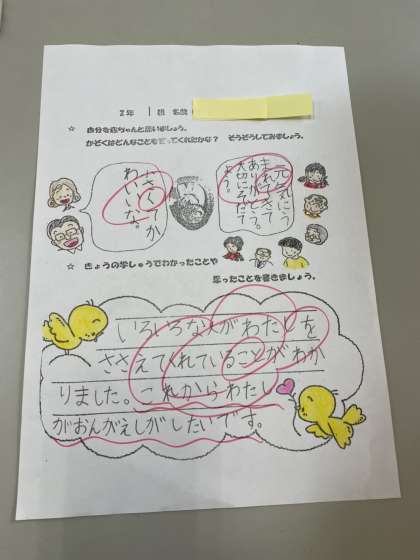 2年 1組 名前(
☆ 自分を赤ちゃんと思いましょう。
かぞくはどんなことを言ってくれたかな? そうぞうしてみましょう。
小さくてか
わいいな。
元気にう
まれてきて
ありがとう。
大切にそだて
るよ。
☆ きょうの学しゅうでわかったことや
思ったことを書きましょう。
いろいろな人がわたしを
ささえてくれていることがわか
りました。これからわたし
がおんがえしがしたいです。